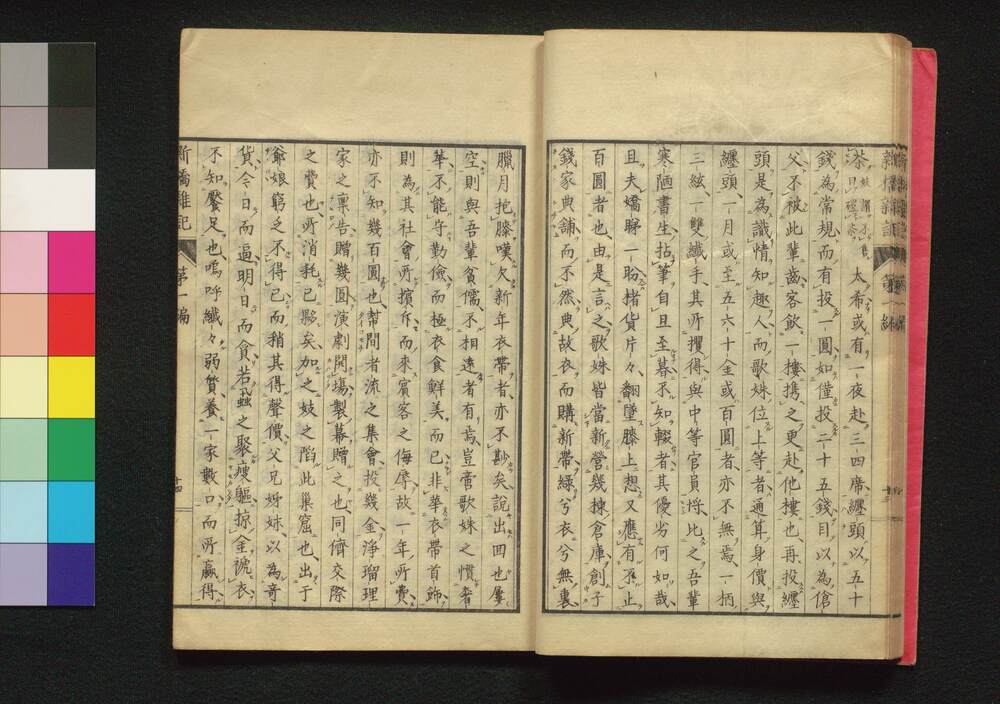 茶 太希或有一夜赴三四席纏頭以五十
錢為常規而有投一圓如僅投二十五錢目以為傖
父不被此輩齒客飲一摟携之更赴他摟也再投纏
頭是為識情知趣人而歌妹位上等者通算身價與
纏頭一月或至五六十金或百圓者亦不無焉一柄
三絃一雙纖手其所攫得與中等官員埒比之吾輩
寒陋書生拈筆自旦至暮不知輟者其優劣何如哉
且夫嬌睇一盼搭貨片々翻墮膝上想又應有
百圓者也由是言之歌妹皆當新營幾棟倉庫創子
錢家典舖而不然典故衣而購新帶綠兮衣兮無裏
臘月抱膝嘆欠新年衣帶者亦不尠矣說出回也屢
空則與吾輩貧儒不相遠者有焉豈啻歌妹之慣奢
華不能守勤儉而極衣食鮮美而已非華衣帶首飾
則為其社會所擯斥而來賓客之侮辱故一年所費
亦不知幾百圓也幇間者流之集會投幾金淨瑠理
家之稟告贈幾圓演劇開場製幕贈之也同儕交際
之費也所消耗已夥矣加之妓之陷此巢窟也出于
爺娘窮乏不得已而稍其得聲價父兄姊妹以為奇
貨今日而逼明日而貪若蝨之聚瘦軀掠金褫衣
不知饜足也嗚呼纖々弱質養一家數口而所贏得
新橋雜記 第一編 十四